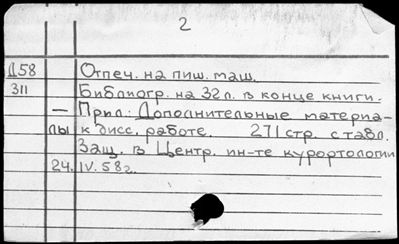 2
Д58 Отпеч. на пиш. маш.
311 Библиогр. на 32 л. в конце книги.
— Прил.: Дополнительные материа-
лы к дисс. работе. 271 стр. с табл.
Защ. в Центр. ин-те курортологии
24.IV.58г.